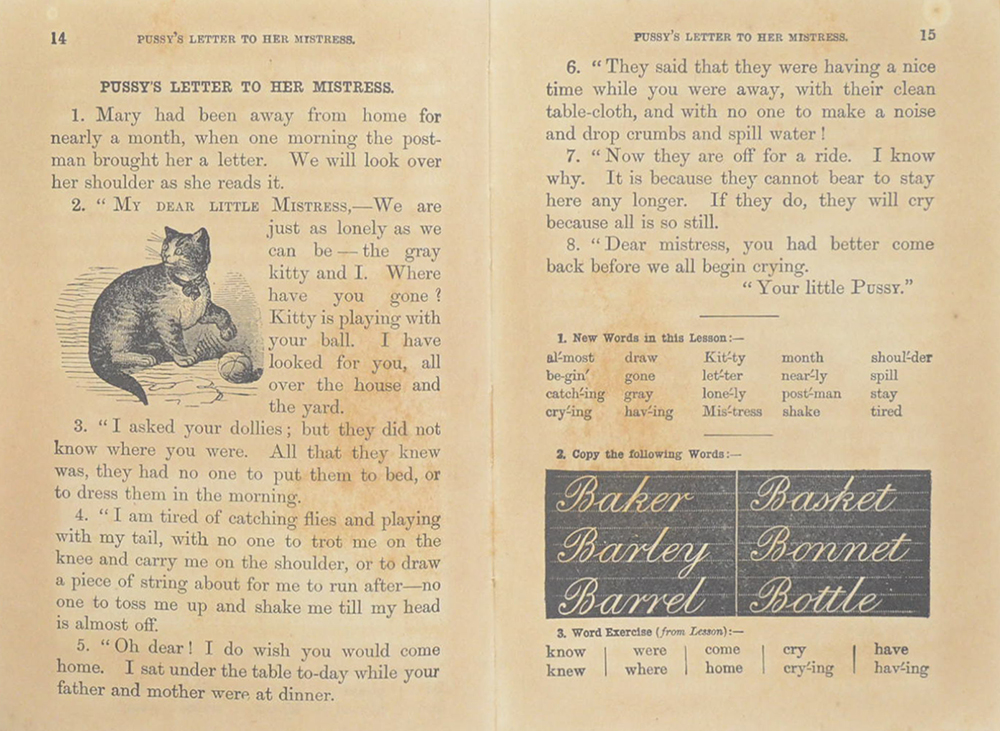 14 PUSSY'S LETTER TO HER MISTRESS.
PUSSY'S LETTER TO HER MISTRESS.
1. Mary had been away from home for
nearly a month, when one morning the post-
man brought her a letter. We will look over
her shoulder as she reads it.
2. “ MY DEAR LITTLE MISTRESS,—We are
just as lonely as we
can be — the gray
kitty and I. Where
have you gone ?
Kitty is playing with
your ball. I have
looked for you, all
over the house and
the yard.
3. “ I asked your dollies ; but they did not
know where you were. All that they knew
was, they had no one to put them to bed, or
to dress them in the morning.
4. “ I am tired of catching flies and playing
with my tail, with no one to trot me on the
knee and carry me on the shoulder, or to draw
a piece of string about for me to run after—no
one to toss me up and shake me till my head
is almost off.
5. “ Oh dear ! I do wish you would come
home. I sat under the table to-day while your
father and mother were at dinner.
PUSSY'S LETTER TO HER MISTRESS. 15
6. “ They said that they were having a nice
time while you were away, with their clean
table-cloth, and with no one to make a noise
and drop crumbs and spill water !
7. “ Now they are off for a ride. I know
why. It is because they cannot bear to stay
here any longer. If they do, they will cry
because all is so still.
8. “ Dear mistress, you had better come
back before we all begin crying.
“ Your little PUSSY.”
1. New Words in this Lesson:—
al′-most draw Kit′-ty month shoul′-der
be-gin′ gone let′-ter near′-ly spill
catch′-ing gray lone′-ly post′-man stay
cry′-ing hav′-ing Mis′-tress shake tired
2. Copy the following Words:—
Baker Basket
Barley Bonnet
Barrel Bottle
3. Word Exercise (from Lesson):—
know were come cry have
knew where home cry′-ing hav′-ing